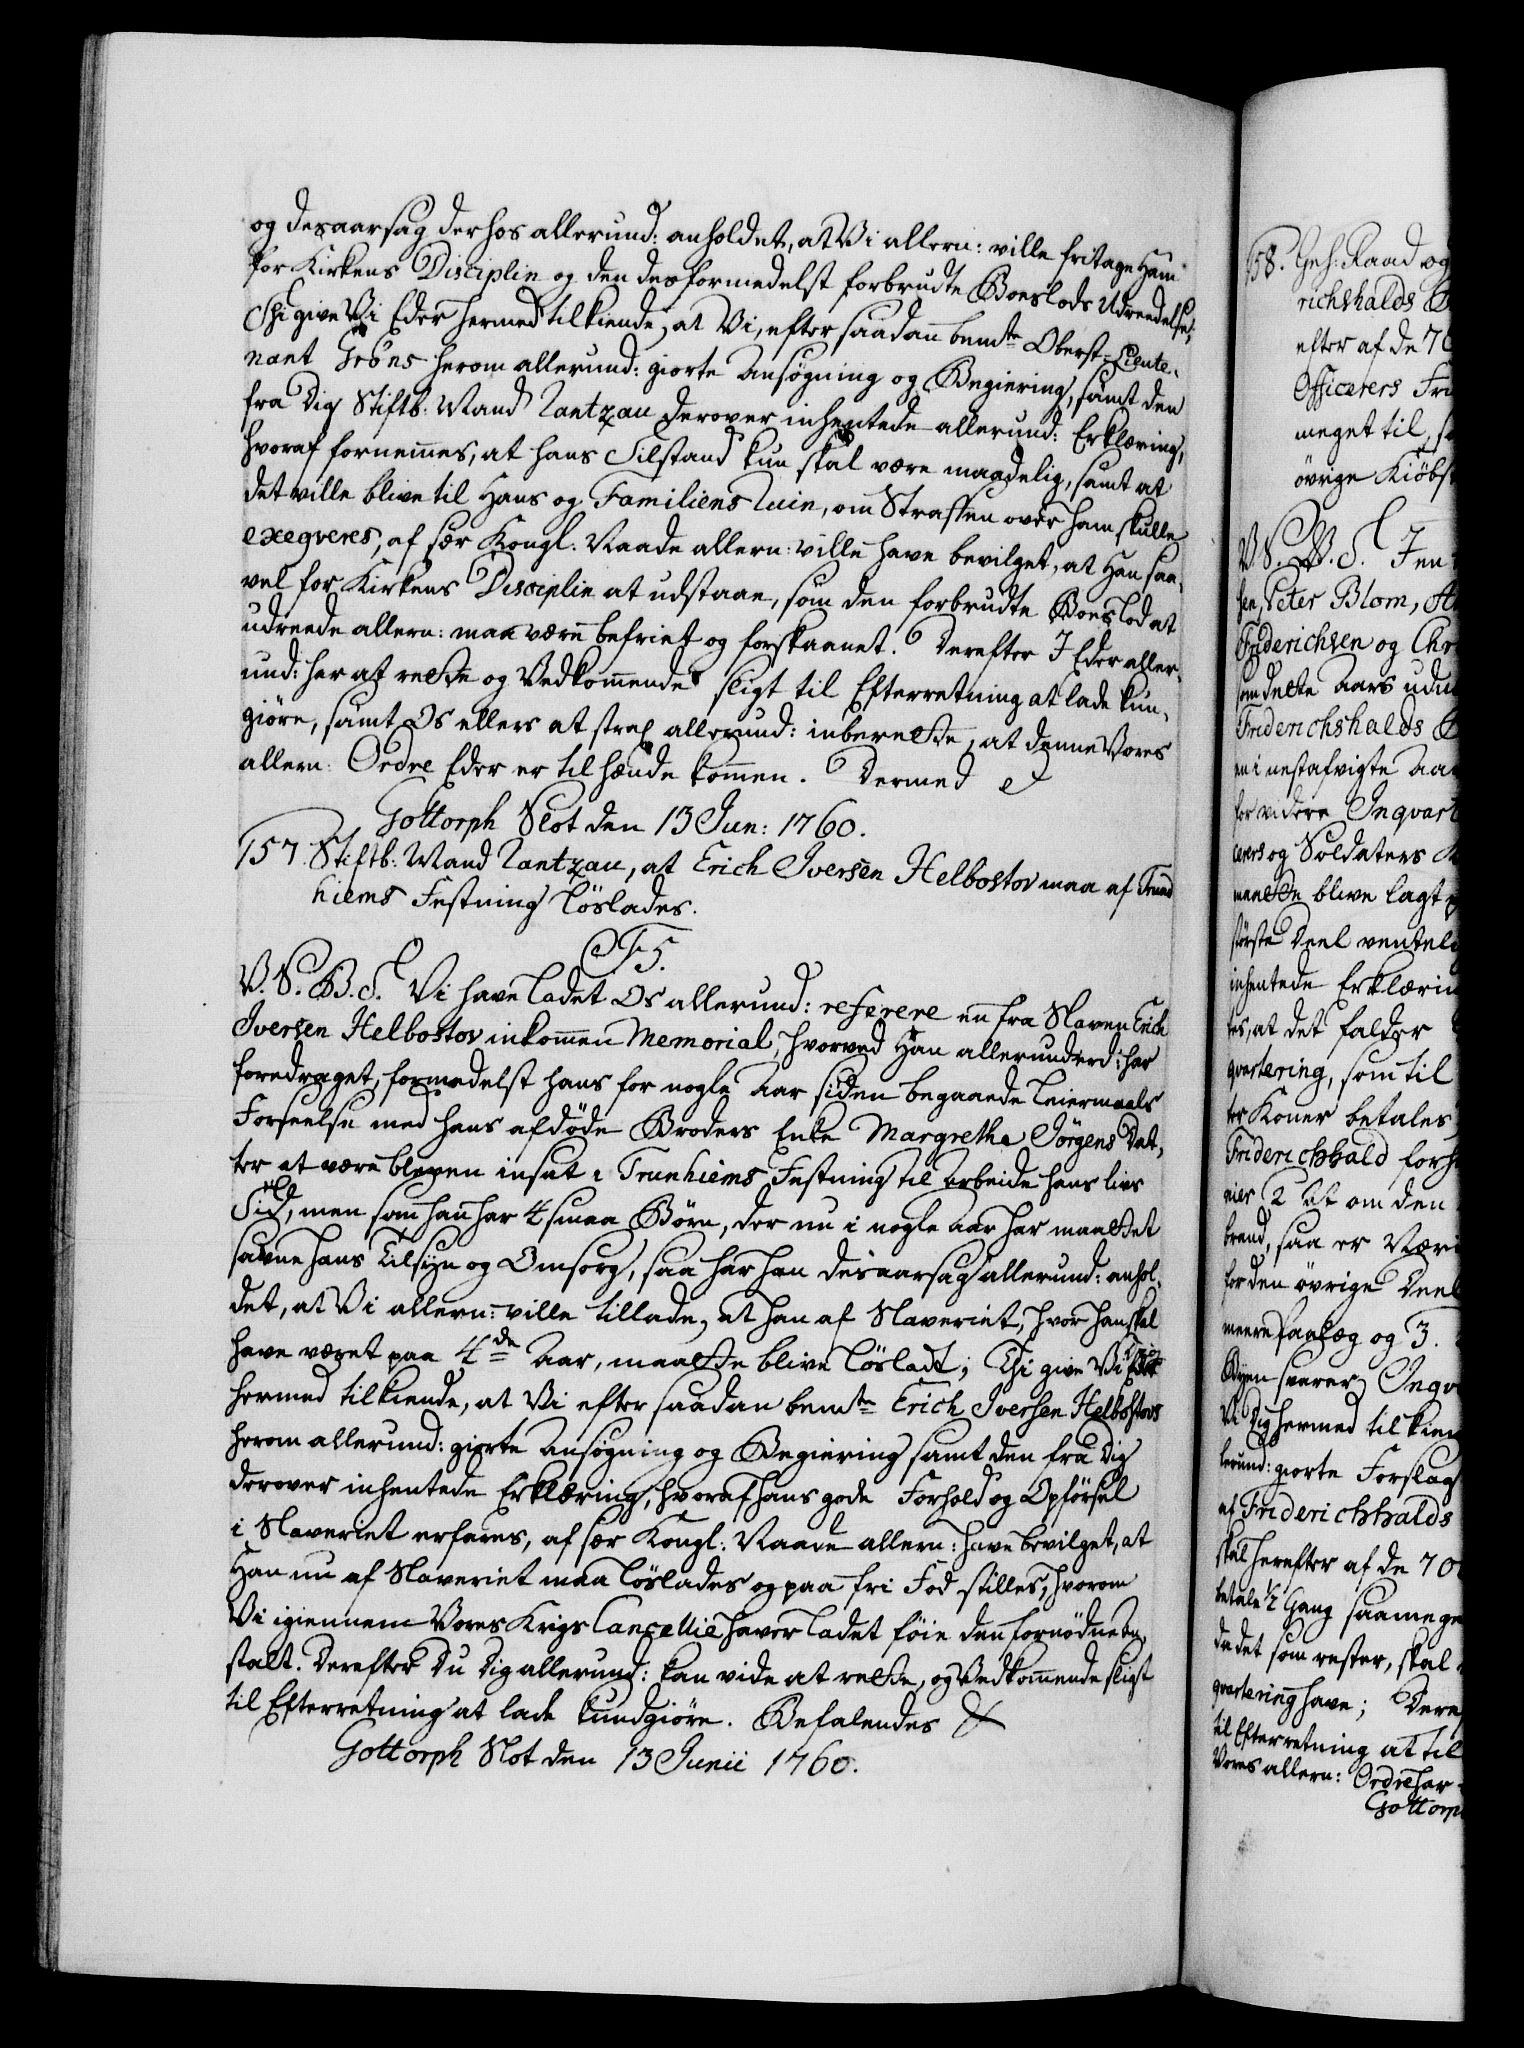 og desaarsag derhos allerund: anholdet, at Vi allern: ville fritage Ham
for Kirkens Disciplin og den desformedelst forbrudte Boeslods Udreedelse;
Thi give Vi Eder hermed tilkiende, at Vi, efter saadan bemte Oberst-Lieute-
nant Gröns herom allerund: giorte Ansøgning og Begiering, samt den
fra Dig Stiftb: Mand Rantzau derover inhentede allerund: Erklæring,
hvoraf fornemmes, at hans Tilstand kun skal være maadelig, samt at
det ville blive til Hans og Familiens Ruin, om Straffen over ham skulle
exeqveres, af sær Kongl: Naade allern: ville have bevilget, at Han saa-
vel for Kirkens Disciplin at udstaae, som den forbrudte Boeslod at
udreede allern: maa være befriet og forskaanet. Derefter I Eder aller-
und: har at rette og Vedkommende sligt til Efterretning at lade kund-
giöre, samt Os ellers at strax allerund: inberette, at denne Vores
allern: Ordre Eder er til hænde kommen. Dermed &
Gottorph Slot den 13 Jun: 1760.
157. Stiftb: Mand Rantzau, at Erich Iversen Helbostov maa af Trund
hiems Festning löslades.
F5.
V. S. B. S. Vi have ladet Os allerund: referere en fra Slaven Erich
Iversen Helbostov inkommen Memorial, hvorved Han allerunderd: har
foredraget, formedelst hans for nogle Aar siden begaaede Leiermaals
Forseelse med hans afdöde Broders Enke Margrethe Jörgens Dat-
ter at være bleven insat i Trunhiems Festning til Arbeide hans livs
Tid, men som han har 4 smaa Börn, der nu i nogle Aar har maattet
savne hans Tilsyn og Omsorg, saa har han desaarsag allerund: anhol-
det, at Vi allern: ville tillade, at han af Slaveriet, hvor han skal
have været paa 4de Aar, maatte blive lösladt; Thi give Vi Dig
hermed tilkiende, at Vi efter saadan bemte Erich Iversen Helbostovs
herom allerund: giorte Ansøgning og Begiering samt den fra Dig
derover inhentede Erklæring, hvoraf hans gode Forhold og Opförsel
i Slaveriet erfares, af sær Kongl: Naade allern: have bevilget, at
Han nu af Slaveriet maa löslades og paa fri Fod stilles, hvorom
Vi igiennem Vores Krigs Cancellie haver ladet föie den fornödne An-
stalt. Derefter Du Dig allerund: kan vide at rette, og Vedkommende sligt
til Efterretning at lade kundgiöre. Befalendes &
Gottorph Slot den 13 Junii 1760.
58. Geh: Raad og
richshalds
efter af de 70
Officerers Fri
meget til, s
övrige Kiöbst
V. S. B. S. I en
sen, Peter Blom,
Friderichsen og Chr
som dette Aars udn
Friderichshalds
en i nestafvigte Aar
for videre Inqvart
cerers og Soldaters
maatte blive lagt
störste Deel ventel
inhentede Erklærin
tes, at det falder
qvartering, som til
ter Koner betales
Friderichhald forh
nier 2 at om den
brand, saa er Væri
for den övrige Deel
meere saalæg og 3.
Byen svarer Inqv
Vi Dig hermed tilkien
lerund: giorte Forslag
af Friderichhalds
skal herefter af de 70
betale 1/2 Gang saamege
da det som rester, skal
qvartering have; Dere
til Efterretning at til
Vores allern: Ordre har
Gottorp